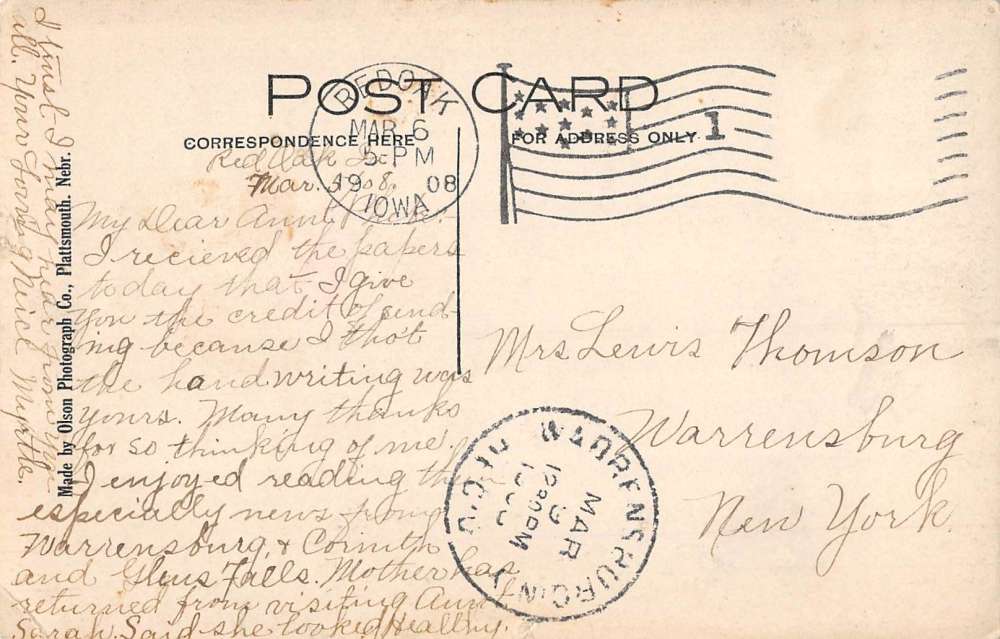 POST CARD
CORRESPONDENCE HERE
FOR ADDRESS ONLY
RED OAK
MAR 6
5 PM
1908
IOWA
1
Red Oak Ia
Mar. 5, 1908.
My Dear Aunt
I recieved the papers
today that I give
you the credit of send-
ing because I thot
the handwriting was
yours. Many thanks
for so thinking of me.
I enjoyed reading them
especially news from
Warrensburg, & Corinth
and Glens Falls. Mother has
returned from visiting Aunt
Sarah. Said she looked Healthy.
I trust I may hear from you
all. Your Loving Neice Myrtle.
Made by Olson Photograph Co., Plattsmouth. Nebr.
Mrs Lewis Thomson
Warrensburg
New York.
WARRENSBURG N.Y.
REC'D
MAR
9
1230PM